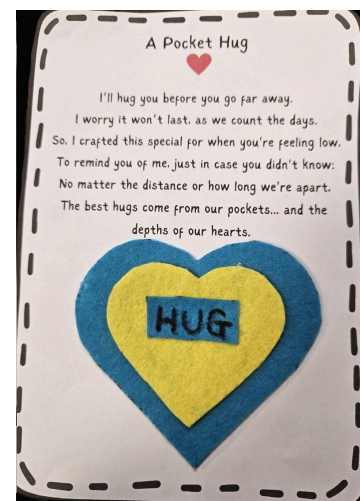 A Pocket Hug
I'll hug you before you go far away.
I worry it won't last, as we count the days.
So, I crafted this special for when you're feeling low.
To remind you of me, just in case you didn't know:
No matter the distance or how long we're apart.
The best hugs come from our pockets... and the
depths of our hearts.
HUG